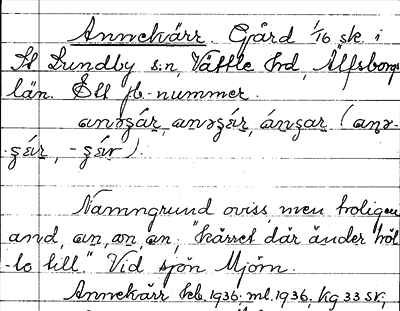 Annekärr. Gård 1/16 sk. i
St Lundby sn, Vättle hd, Älfsborgs
län. Ett jb.-nummer.
Namngrund oviss, men troligen
and, an, an, an, "kärret där änder höl-
-lo till." Vid sjön Mjörn.
Annekärr keb. 1936, ml. 1936, kg 33 sv.,